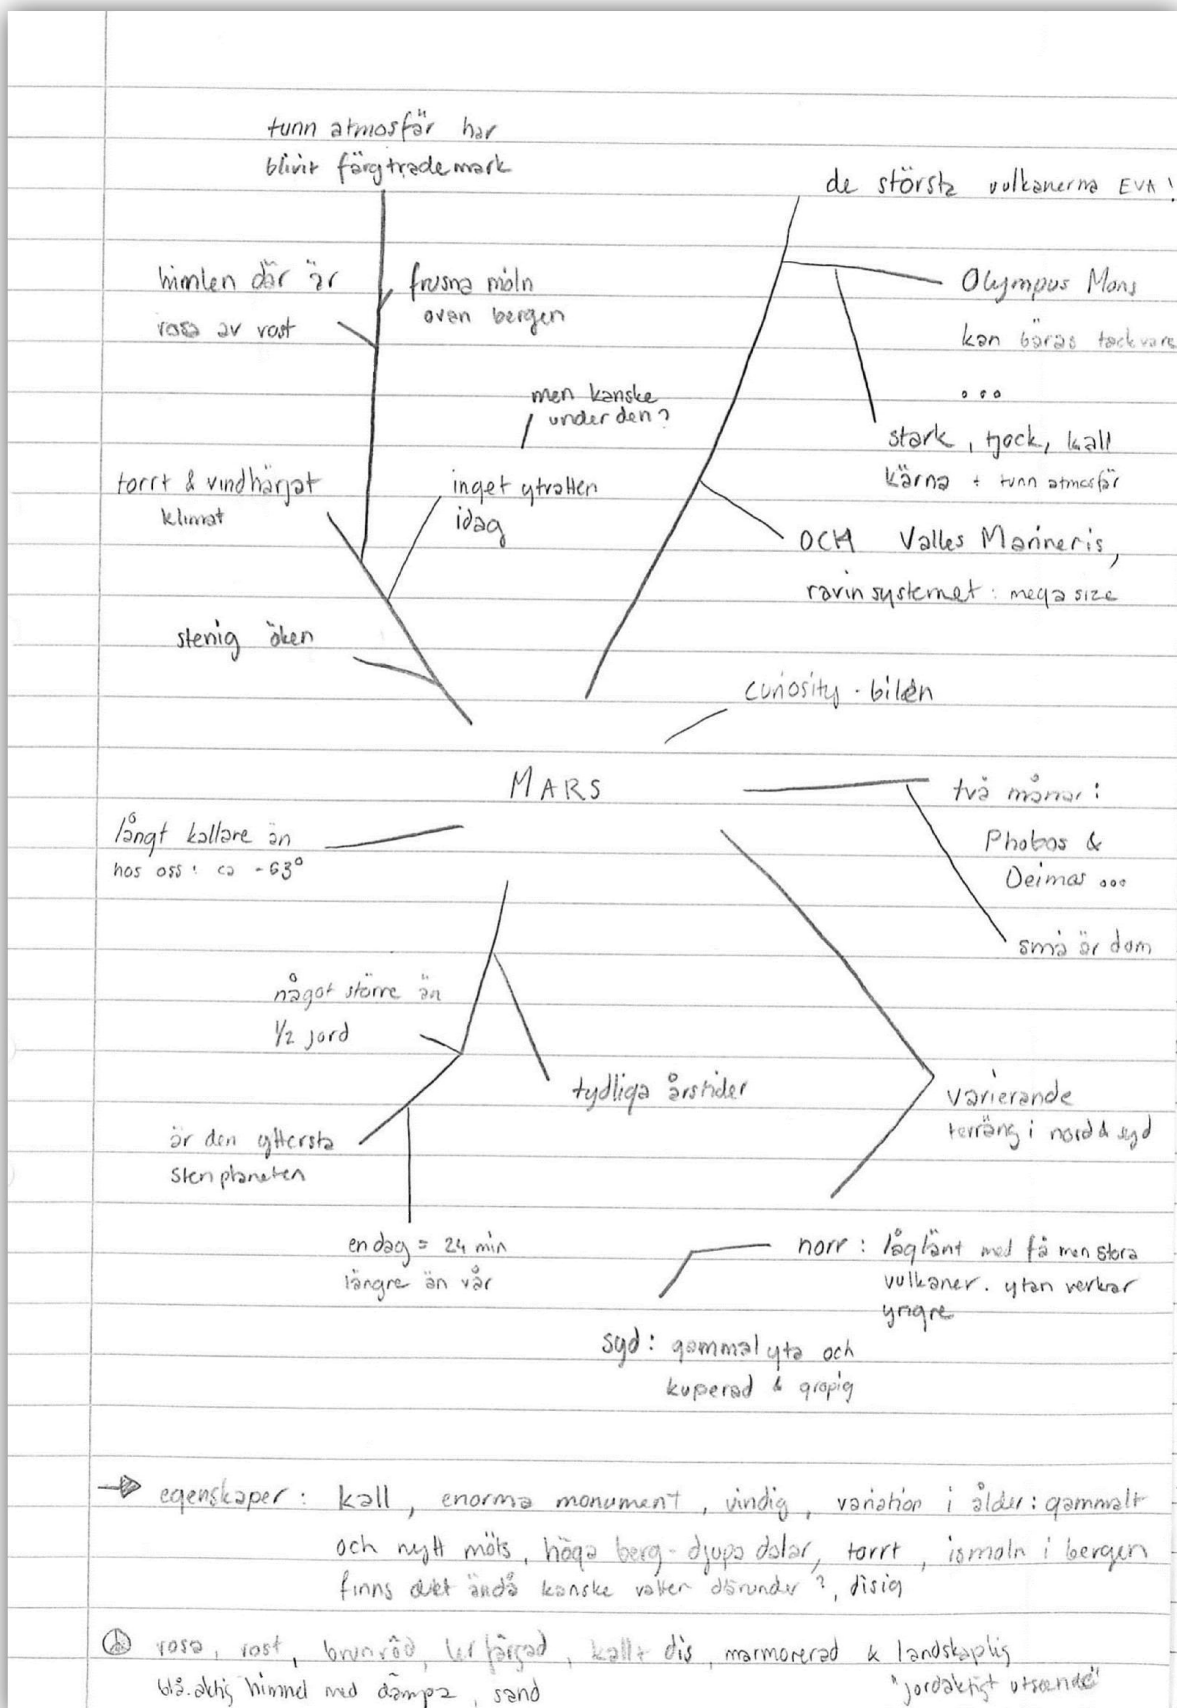 tunn atmosfär har
blivit färgtrademark
himlen där är
rosa av rost
frusna moln
ovan bergen
men kanske
under den?
torrt & vindhärjat
klimat
inget ytvatten
idag
stenig öken
de största vulkanerna EVA!
Olympus Mons
kan bäras tack vare
...
stark, tjock, kall
kärna + tunn atmosfär
OCH Valles Marineris,
ravinsystemet: mega size
curiosity-bilen
MARS
två månar:
Phobos &
Deimos ...
små är dom
långt kallare än
hos oss: ca -63°
något större än
1/2 jord
tydliga årstider
är den yttersta
stenplaneten
en dag = 24 min
längre än vår
varierande
terräng i nord & syd
norr: låglänt med få men stora
vulkaner. ytan verkar
yngre
syd: gammal yta och
kuperad & gropig
→ egenskaper: kall, enorma monument, vindig, variation i ålder: gammalt
och nytt möts, höga berg - djupa dalar, torrt, ismoln i bergen
finns det ändå kanske vatten därunder?, disig
rosa, rost, brunröd, lerfärgad, kallt dis, marmorerad & landskaplig
blå-aktig himmel med dämpa, sand
"jordaktigt utseende"